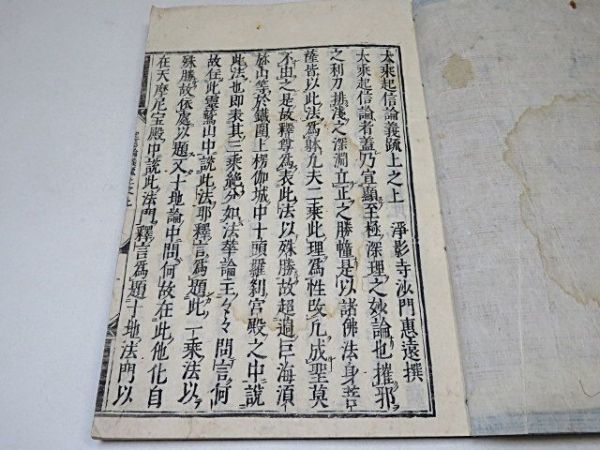 大乘起信論義疏上之上　淨影寺沙門惠遠撰
大乘起信論者蓋乃宣顯至極深理之妙論也摧邪
之利刀排淺之深淵立正之勝幢是以諸佛法身菩
薩皆以此法爲躰凡夫二乘此理爲性改凡成聖莫
不由之是故釋尊爲表此法以殊勝故超過巨海須
弥山等於鐵圍上楞伽城中十頭羅刹宮殿之中說
此法也即表其三乘絶分如法華論王舍々問言何
故在此靈鷲山中說此法耶釋言爲題此一乘法以
殊勝故依處以題又十地論中問何故在此他化自
在天摩尼宝殿中說此法門釋言爲題十地法門以